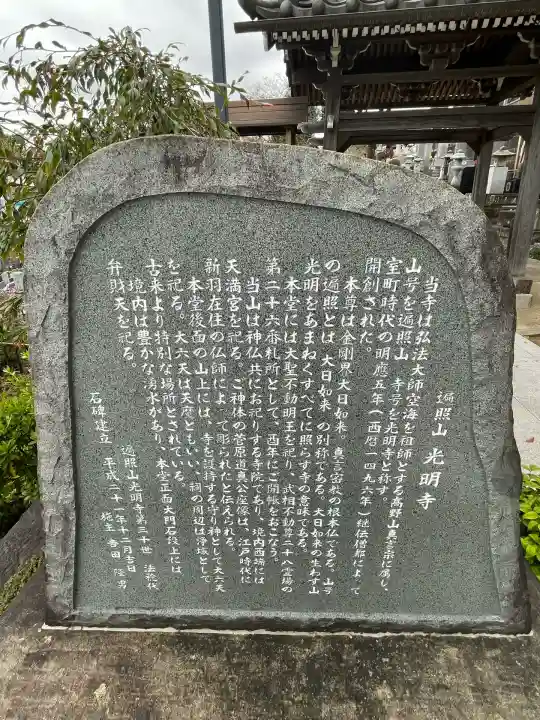 遍照山 光明寺
当寺は弘法大師空海を祖師とする高野山真言宗に属し、
山号を遍照山、寺号を光明寺と称す。
室町時代の明應五年(西暦一四九六年)継伝僧都によって
開創された。
本尊は金剛界大日如来。真言密教の根本仏である。山号
の遍照とは、大日如来の別称である。大日如来の生わす山
光明をあまねくすべてに照らす寺の意味である。
本堂には大聖不動明王を祀り、武相不動尊二十八霊場の
第二十六番札所として、酉年にご開帳をおこなう。
当山は神仏共にお祀りする寺院であり、境内西端には
天満宮を祀る。ご神体の菅原道真公座像は、江戸時代に
新羽在住の仏師によって彫られたと伝えられる。
本堂後面の山上には、寺を護持する守り神として大六天
を祀る。大六天は天魔ともいい、祠の周辺は浄域として
古来より特別な場所とされている。
境内は豊かな湧水があり、本堂正面大門石段上には
弁財天を祀る。
遍照山光明寺第三十世 法裕代
石碑建立 平成二十一年十二月吉日
施主 吉田 隆男